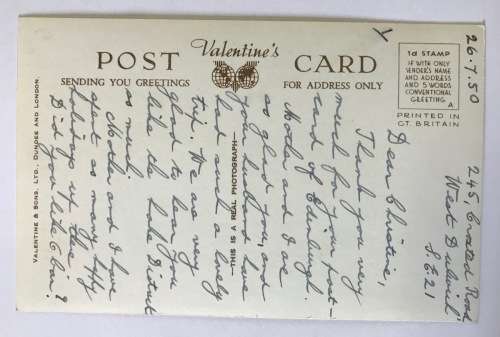 POST Valentine's CARD
SENDING YOU GREETINGS
FOR ADDRESS ONLY
1d STAMP
IF WITH ONLY
SENDER'S NAME
AND ADDRESS
AND 5 WORDS
CONVENTIONAL
GREETING.
A
PRINTED IN
GT. BRITAIN
VALENTINE & SONS, LTD., DUNDEE AND LONDON.
THIS IS A REAL PHOTOGRAPH
26.7.50
245, Croxted Road,
West Dulwich
S.E.21
Dear Christine,
Thank you very
much for your post-
card of Edinburgh.
Mother and I are
so glad you, and
your husband have
had such a lovely
trip. We are very
glad to hear you
like the Lake District
so much.
Mother and I have
spent so many happy
holidays up there
Did you like